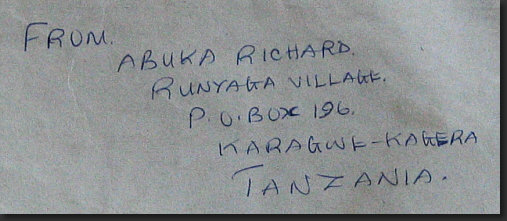 FROM.
ABUKA RICHARD.
RUNYAGA VILLAGE.
P.O.BOX 196.
KARAGWE-KAGERA
TANZANIA.